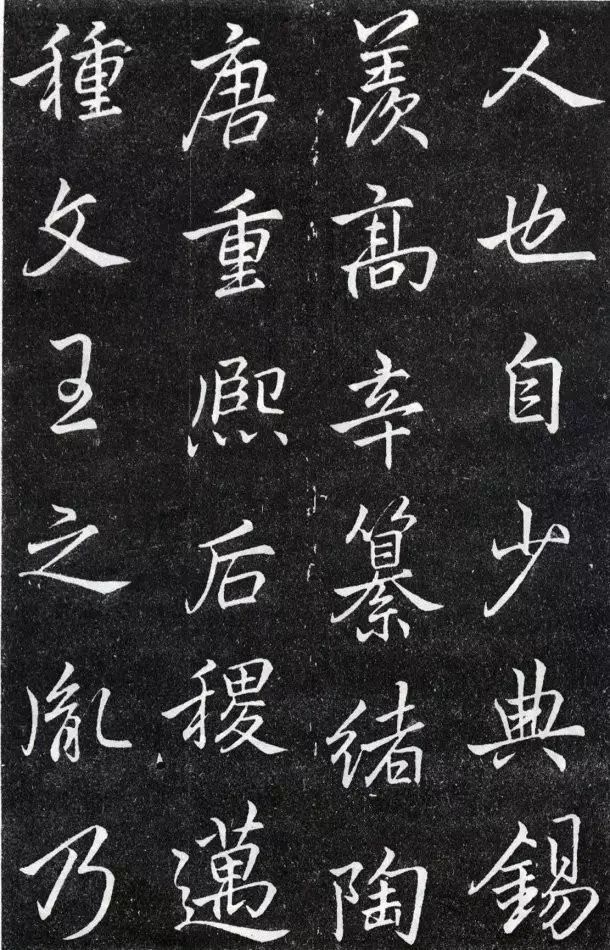 人也自少典錫
羨髙辛纂緒陶
唐重熙后稷邁
種文王之胤乃